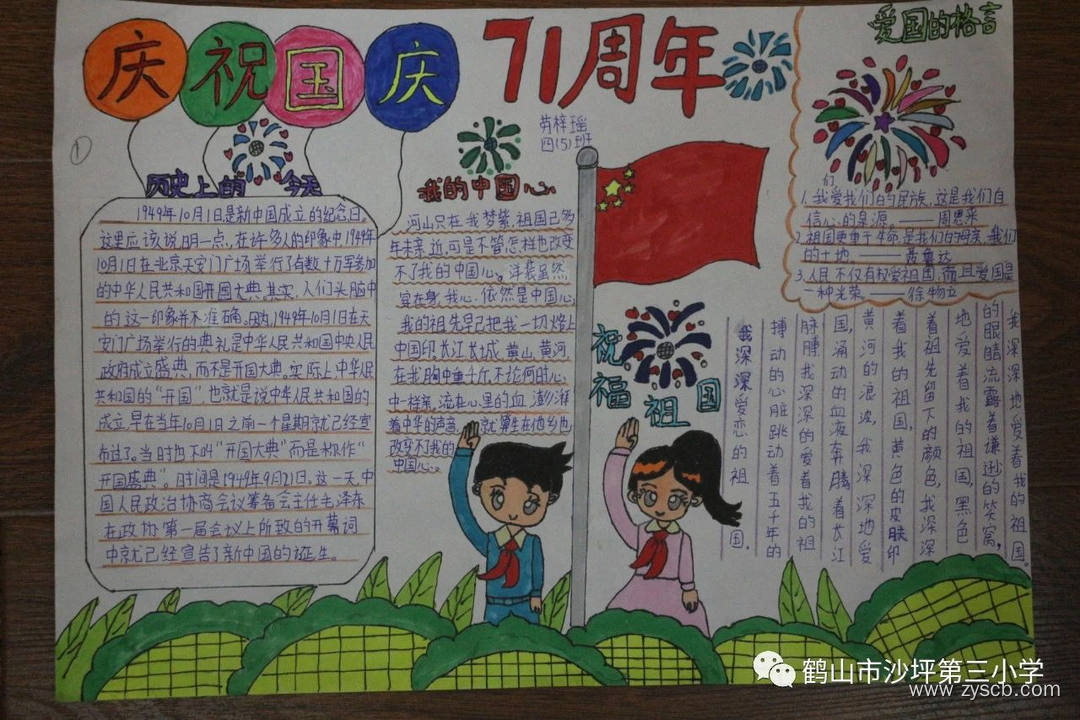 庆祝国庆
71周年
爱国的格言
劳梓瑶
四(5)班
①
历史上的今天
1949年10月1日是新中国成立的纪念日。
这里应该说明一点,在许多人的印象中,1949年
10月1日在北京天安门广场举行了有数十万军参加
的中华人民共和国开国大典。其实,人们头脑中
的这一印象并不准确。因为,1949年10月1日在天
安门广场举行的典礼是中华人民共和国中央人民
政府成立盛典,而不是开国大典。实际上中华人民
共和国的“开国”,也就是说中华人民共和国的
成立,早在当年10月1日之前一个星期就已经宣
布过了。当时也不叫“开国大典”而是称作“
开国盛典”。时间是1949年9月21日。这一天,中
国人民政治协商会议筹备会主任毛泽东
在政协第一届会议上所致的开幕词
中就已经宣告了新中国的诞生。
我的中国心
河山只在我梦萦,祖国已多
年未亲近,可是不管怎样也改变
不了我的中国心。洋装虽然
穿在身,我心依然是中国心,
我的祖先早已把我一切烙上
中国印,长江长城,黄山,黄河
在我胸中重千斤,不论何时心
中一样亲,流在心里的血,澎湃
着中华的声音,就算生在他乡也
改变不了我的
中国心。
们
1.我爱我们的民族,这是我们自
信心的泉源。——周恩来
2.祖国更重于生命,是我们的母亲,我们
的土地。
3.人民不仅有权爱祖国,而且爱国是
一种光荣。——徐特立
祝福祖国
我深深地爱着我的祖国。
的眼睛流露着谦逊的笑窝,
地爱着我的祖国,黑色
着祖先留下的颜色,我深深
着我的祖国,黄色的皮肤印
黄河的浪波,我深深地爱
国,涌动的血液奔腾着长江
脉膊,我深深的爱着我的祖
搏动的心脏跳动着五千年的
我深深爱恋的祖国。
鹤山市沙坪第三小学
www.zyscb.com